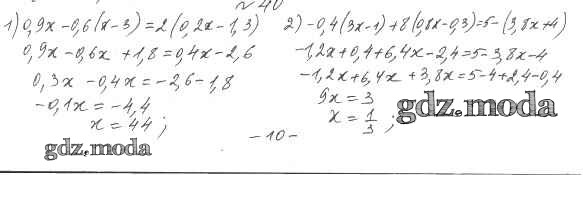 № 40
1) 0,9x - 0,6(x-3) = 2(0,2x-1,3)
0,9x - 0,6x + 1,8 = 0,4x - 2,6
0,3x - 0,4x = -2,6 - 1,8
-0,1x = -4,4
x = 44;
gdz.moda
2) -0,4(3x-1) + 8(0,8x-0,3) = 5-(3,8x+4)
-1,2x + 0,4 + 6,4x - 2,4 = 5 - 3,8x - 4
-1,2x + 6,4x + 3,8x = 5 - 4 + 2,4 - 0,4
9x = 3
x = 1/3;
gdz.moda
- 10 -